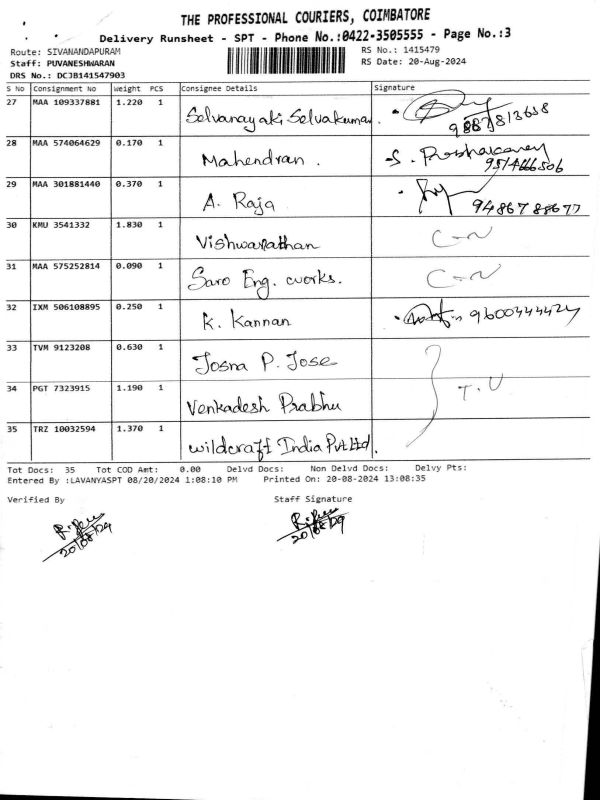 THE PROFESSIONAL COURIERS, COIMBATORE
Delivery Runsheet - SPT - Phone No.:0422-3505555 - Page No.:3
Route: SIVANANDAPURAM RS No.: 1415479
Staff: PUVANESHWARAN RS Date: 20-Aug-2024
DRS No.: DCJB141547903
S No Consignment No Weight PCS Consignee Details Signature
27 MAA 109337881 1.220 1 Selvanayaki Selvakumar
28 MAA 574064629 0.170 1 Mahendran . S. Prabhakaran
29 MAA 301881440 0.370 1 A. Raja 9486788677
30 KMU 3541332 1.830 1 Vishwanathan C-N
31 MAA 575252814 0.090 1 Saro Eng. works. C-N
32 IXM 506108895 0.250 1 K. Kannan 9600444424
33 TVM 9123208 0.630 1 Josna P. Jose
34 PGT 7323915 1.190 1 Venkadesh Prabhu T.U
35 TRZ 10032594 1.370 1 wildcraft India Pvt Ltd.
Tot Docs: 35 Tot COD Amt: 0.00 Delvd Docs: Non Delvd Docs: Delvy Pts:
Entered By :LAVANYASPT 08/20/2024 1:08:10 PM Printed On: 20-08-2024 13:08:35
Verified By Staff Signature
20/08/24 20/08/24